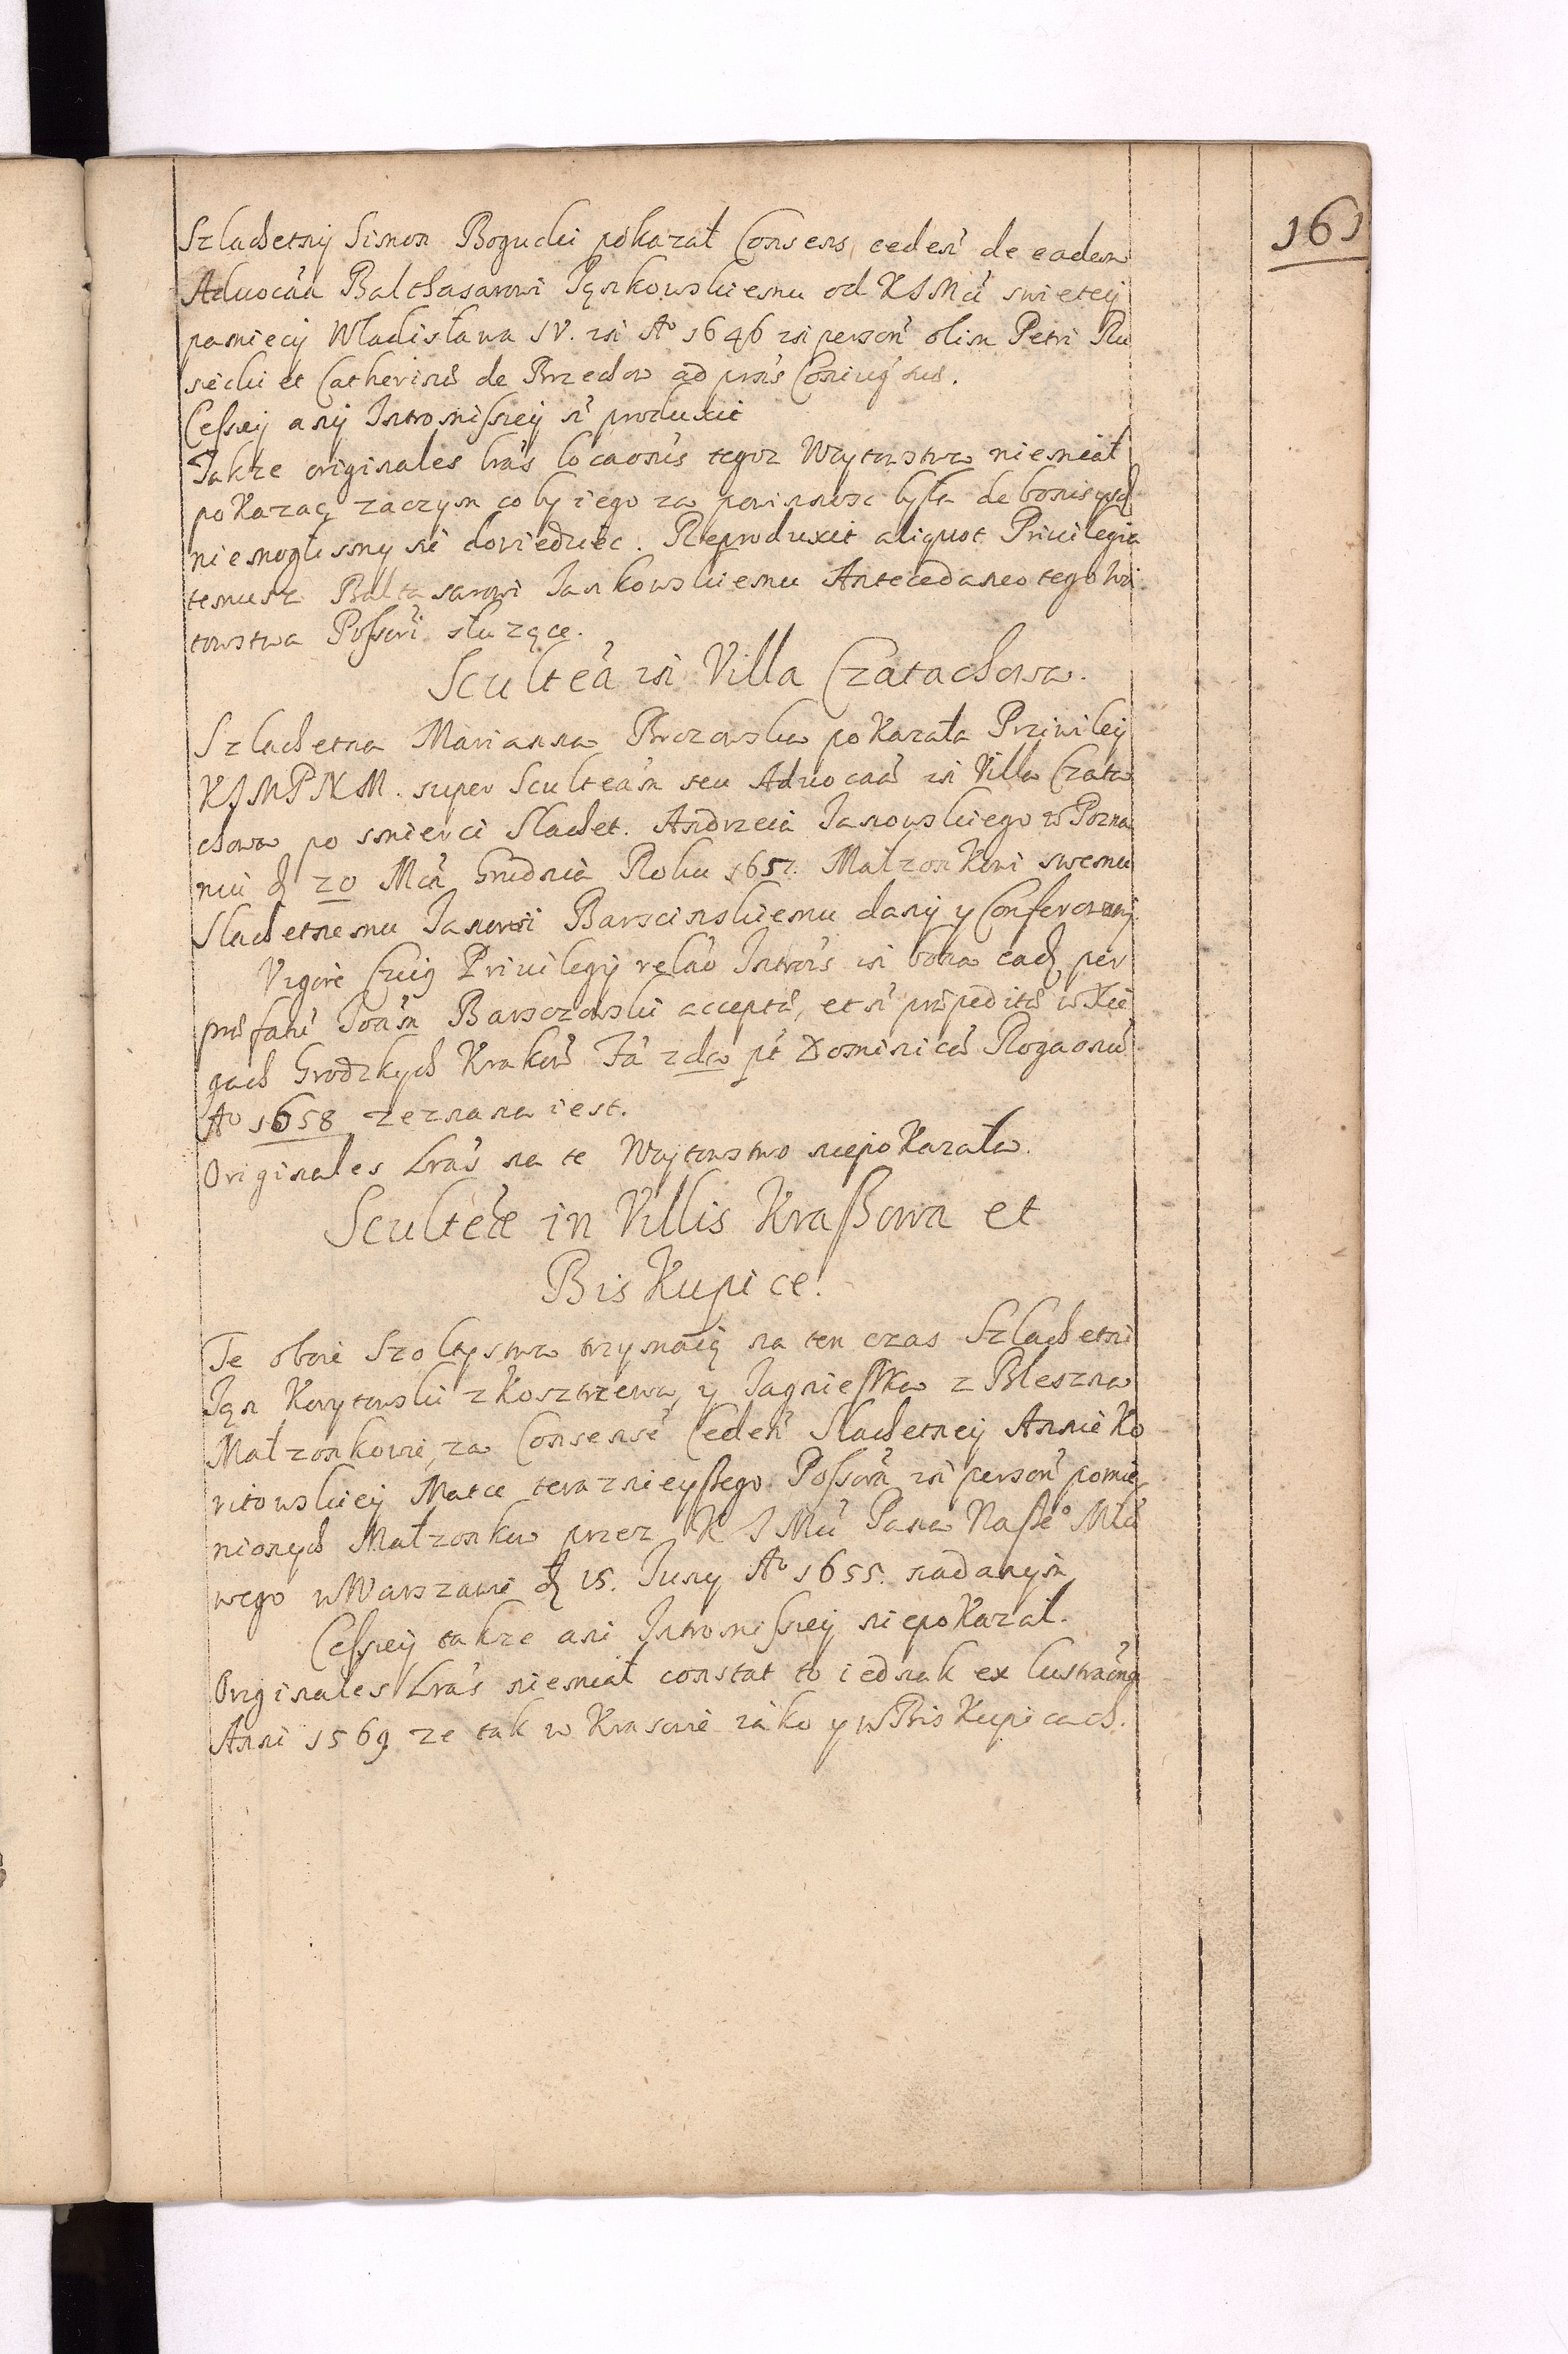 161
Szlachetny Simon Bogucki pokazał Consens cedeń de eadem
Aduocáá Balthasarowi Jąnkowskiemu od KJMci swietey
pamiecy Władisława IV. in Ao 1646 in person olim Petri Ru
siecki et Catherinæ de Brzechow ad præns Coniug sus.
Cessiey any Intromissiey ń produxit
Także originales Lrás locaonis tegoz Woytowstwa niemiał
pokazac zaczym co by iego za powinnosc była de bonis
niemoglismy sie dowiedziec. Reproduxit aliquot Priuilegia
temusz Baltasarowi Jankowskiemu Antecedaneo tego Wi
towstwa Possori słuzące.
Sculteá in Villa Czatachowa.
Szlachetna Marianna Brzozowska pokazała Prziwiley
KJMPNM. super Sculteám seu Aduocaá in Villa Czata
chowa po smierci Slachet. Andrzeia Janowskiego w Pozna
niu d 20 Mcá Grudnia Roku 1657. Małzonkowi swemu
Slachetnemu Janowi Barscinskiemu dany y Conferowany.
Vigore Cuig Priuilegij relao Introis in bona ead per
præfatū Joám Barszczowski acceptæ, et ń præpeditæ w Xię
gach Grodzkych Krakow Fa 2da pt Dominicā Rogaonū
Ao 1658 zeznana iest.
Originales Lrás na te Woytowstwo niepokazała.
Scultéæ in Villis Kraßowa et
BisKupice.
Te oboie Szoltystwa trzymaią na ten czas Szlachetni
Jąn Korytowski z Kosztrzewa, y Jagnieszka z Bleszna
Małzonkowie, za Consensé Cedeń Slachetney Annie Ko
ritowskiey Matce teraznieyßego Possora in person pomię
nionych Małzonkow przez KJMci Pana Naße° Mło
wego w Warszawie d 15. Juny Ao 1655. nadanym
Cessiey także ani Intromissiey niepokazał.
Originales Lrás niemiał constat to iednak ex lustraóng
Anni 1569 ze tak w Krasowie iáko y w BisKupicach.